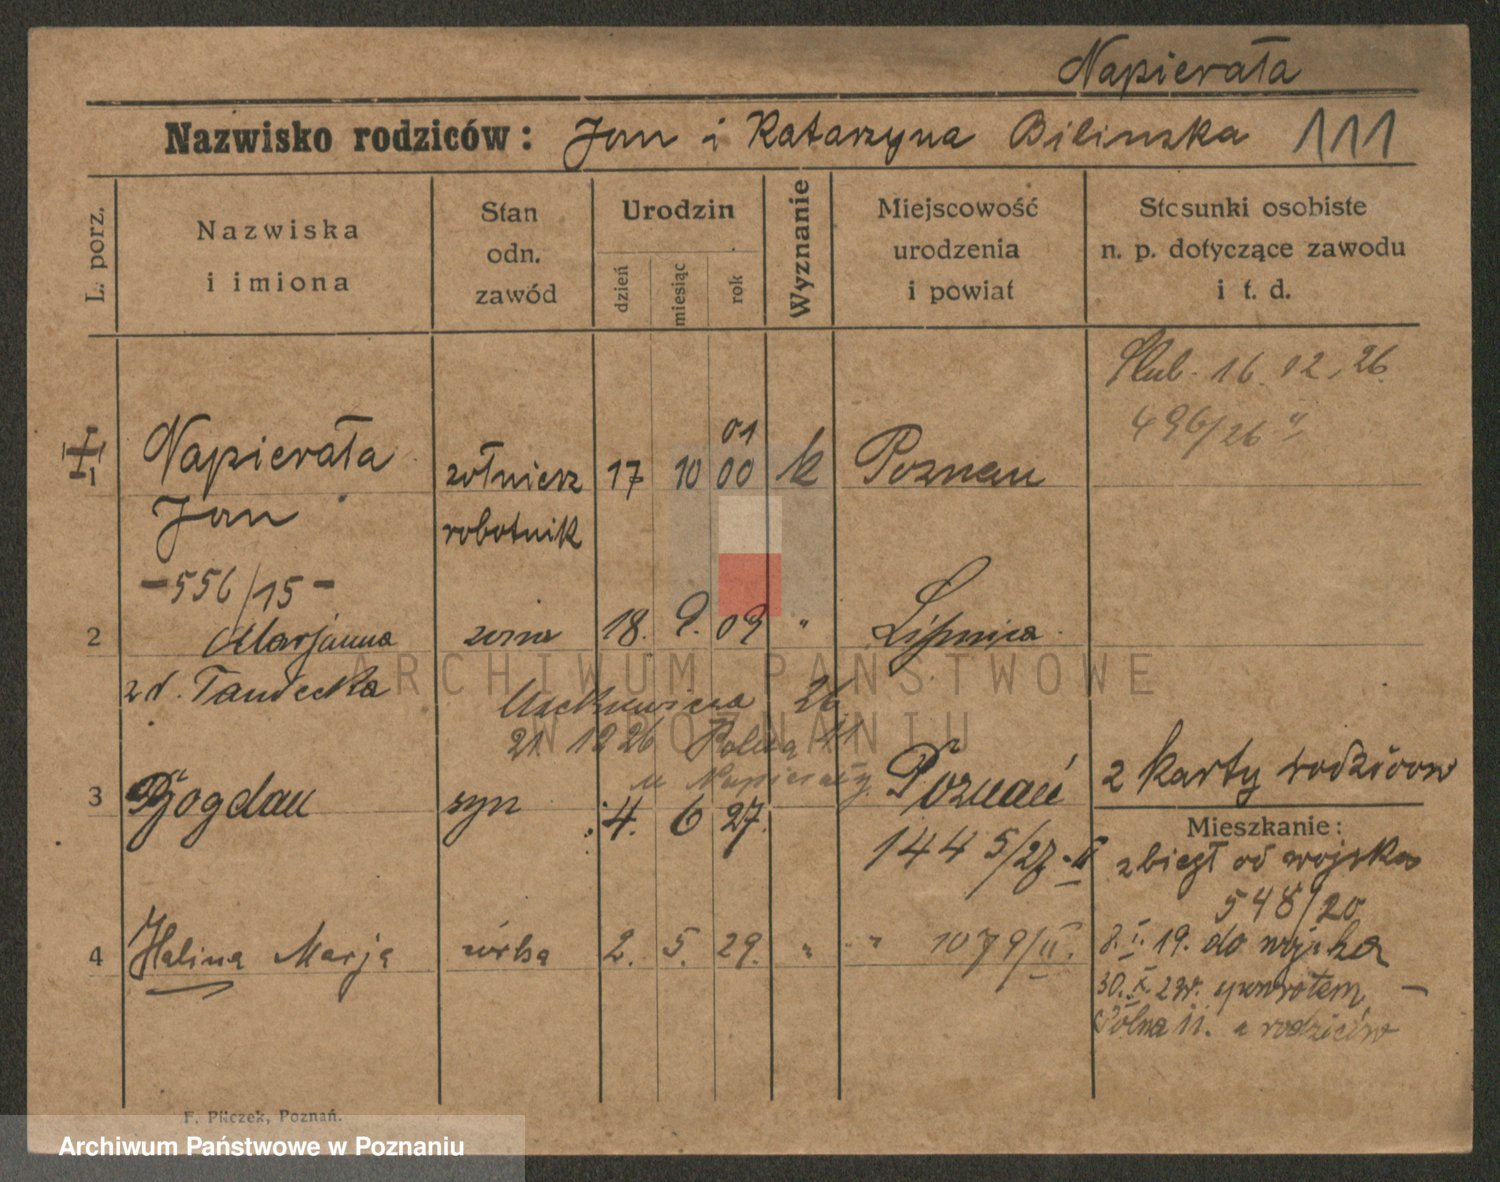 Napierała
Nazwisko rodziców: Jan i Katarzyna Bilinska 111
L. porz.
Nazwiska
i imiona
Stan
odn.
zawód
Urodzin
dzień
miesiąc
rok
Wyznanie
Miejscowość
urodzenia
i powiat
Stosunki osobiste
n. p. dotyczące zawodu
i t. d.
Ślub. 16. 12. 26.
496/26
01
1 Napierała żołnierz 17 10 00 k Poznan
Jan robotnik
-556/15-
2 Marjanna żona 18. 9. 09 " Lipnica
zd. Tandecka
26
21 12 26 Polna 11
u Napierały
3 Bogdan syn 4. 6 27. Poznań
2 karty rodziców
1445/27-II
Mieszkanie:
zbiegł od wojska
548/20
4 Halina Marja córka 2. 5. 29. " " 1079/II.
8. II. 19. do wojska
30. X. 22r. spowrotem -
Polna 11. u rodziców
F. Pilczek, Poznań.
ARCHIWUM PAŃSTWOWE
W POZNANIU
Archiwum Państwowe w Poznaniu